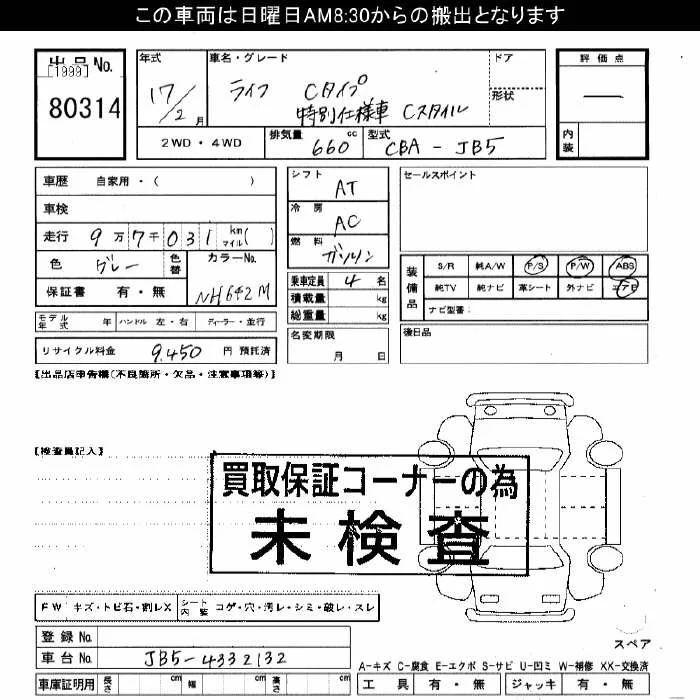 この車両は日曜日AM8:30からの搬出となります
出品No.
[1999]
80314
年式 車名・グレード ドア 評価点
17/2月 ライフ Cタイプ 形状 —
特別仕様車 Cスタイル
2WD・4WD 排気量 660 cc 型式 CBA-JB5 内装
車歴 自家用・( ) シフト AT セールスポイント
車検 冷房 AC
走行 9万7千031 km マイル( ) 燃料 ガソリン
色 グレー 色替 カラーNo. NH642M
保証書 有・無
乗車定員 4名
積載量 kg
総重量 kg
装備品 S/R 純A/W P/S P/W ABS
純TV 純ナビ 革シート 外ナビ エアB
ナビ型番:
モデル年式 年 ハンドル 左・右 ディーラー・並行
名変期限 月 日
後日品
リサイクル料金 9,450 円 預託済
【出品店申告欄(不良箇所・欠品・注意事項等)】
【検査員記入】
買取保証コーナーの為
未検査
FW キズ・トビ石・割レX シート内装 コゲ・穴・汚レ・シミ・破レ・スレ
登録No.
車台No. JB5-4332132
スペア
A-キズ C-腐食 E-エクボ S-サビ U-凹ミ W-補修 XX-交換済
車庫証明用 長さ cm 幅 cm 高さ cm 工具 有・無 ジャッキ 有・無